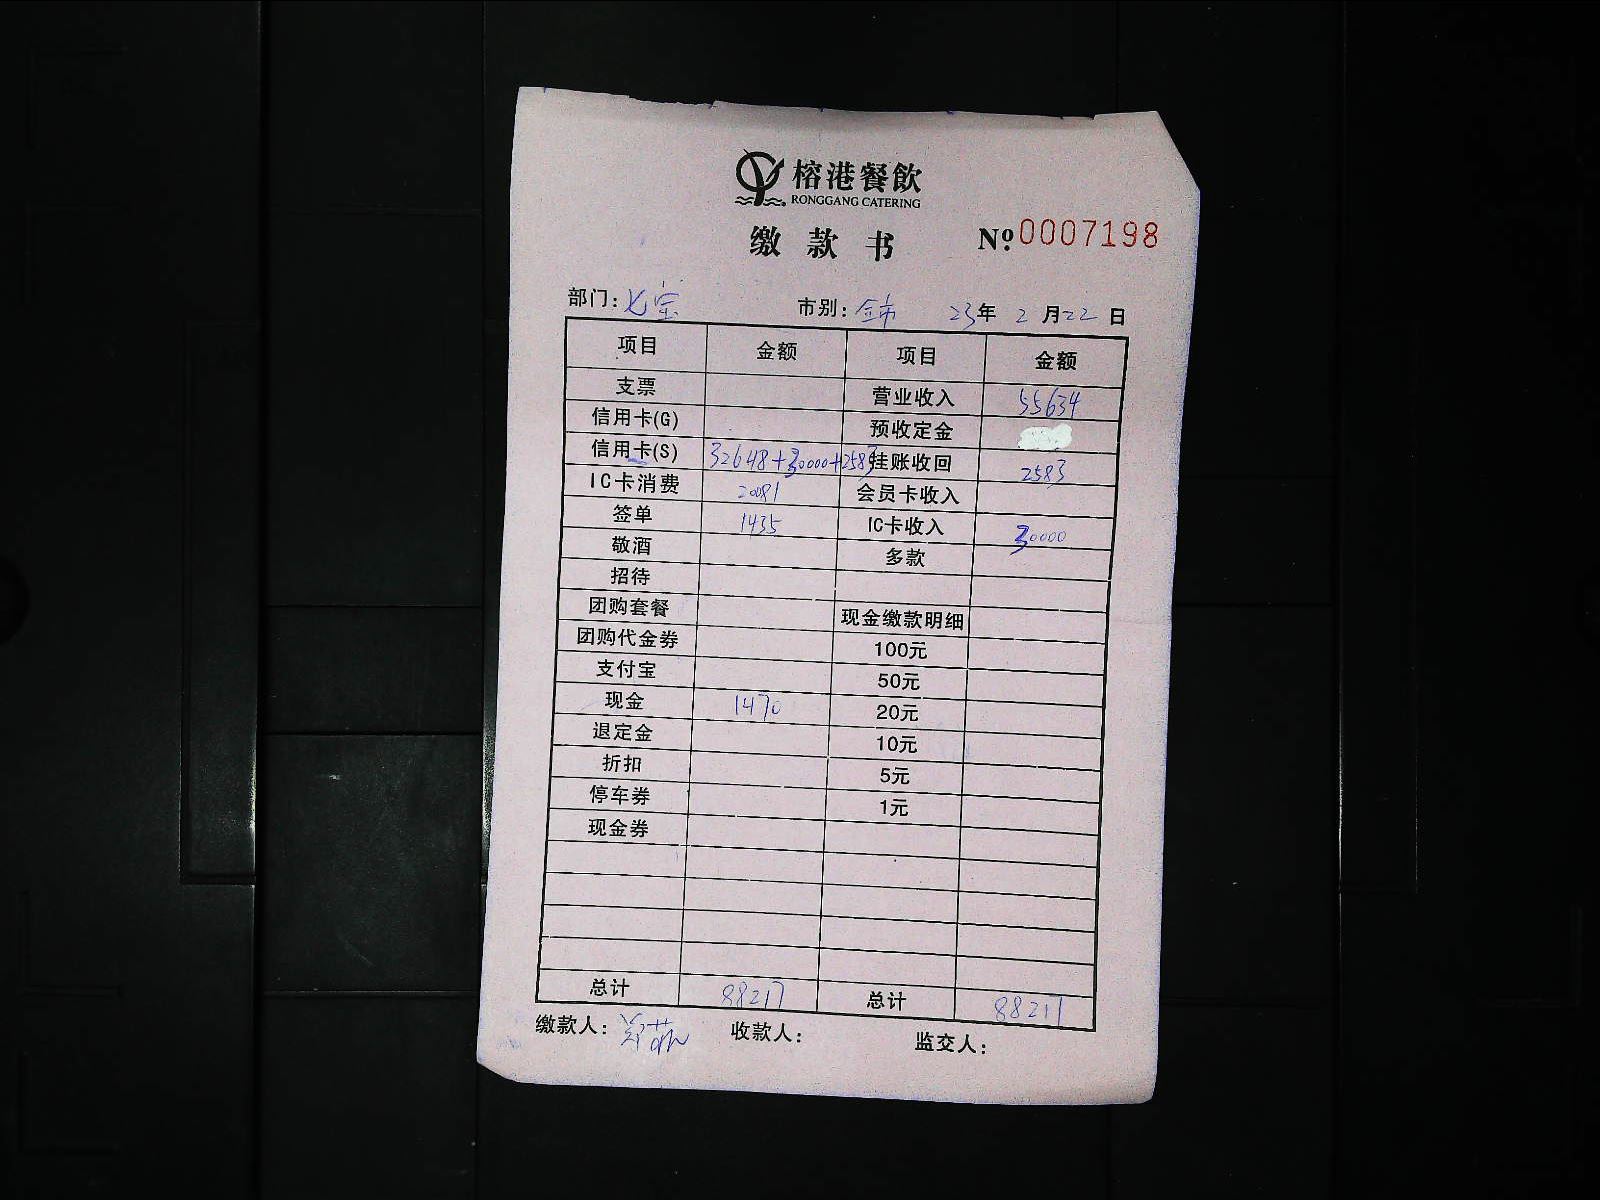 榕港餐飲
RONGGANG CATERING
缴款书
Nº 0007198
部门：七宝 市别：全市 23年 2月22日
项目 金额 项目 金额
支票 营业收入 55634
信用卡(G) 预收定金
信用卡(S) 32648+30000+2583 挂账收回 2583
IC卡消费 20081 会员卡收入
签单 1435 IC卡收入 30000
敬酒 多款
招待
团购套餐 现金缴款明细
团购代金券 100元
支付宝 50元
现金 1470 20元
退定金 10元
折扣 5元
停车券 1元
现金券
总计 88217 总计 88217
缴款人： 收款人： 监交人：